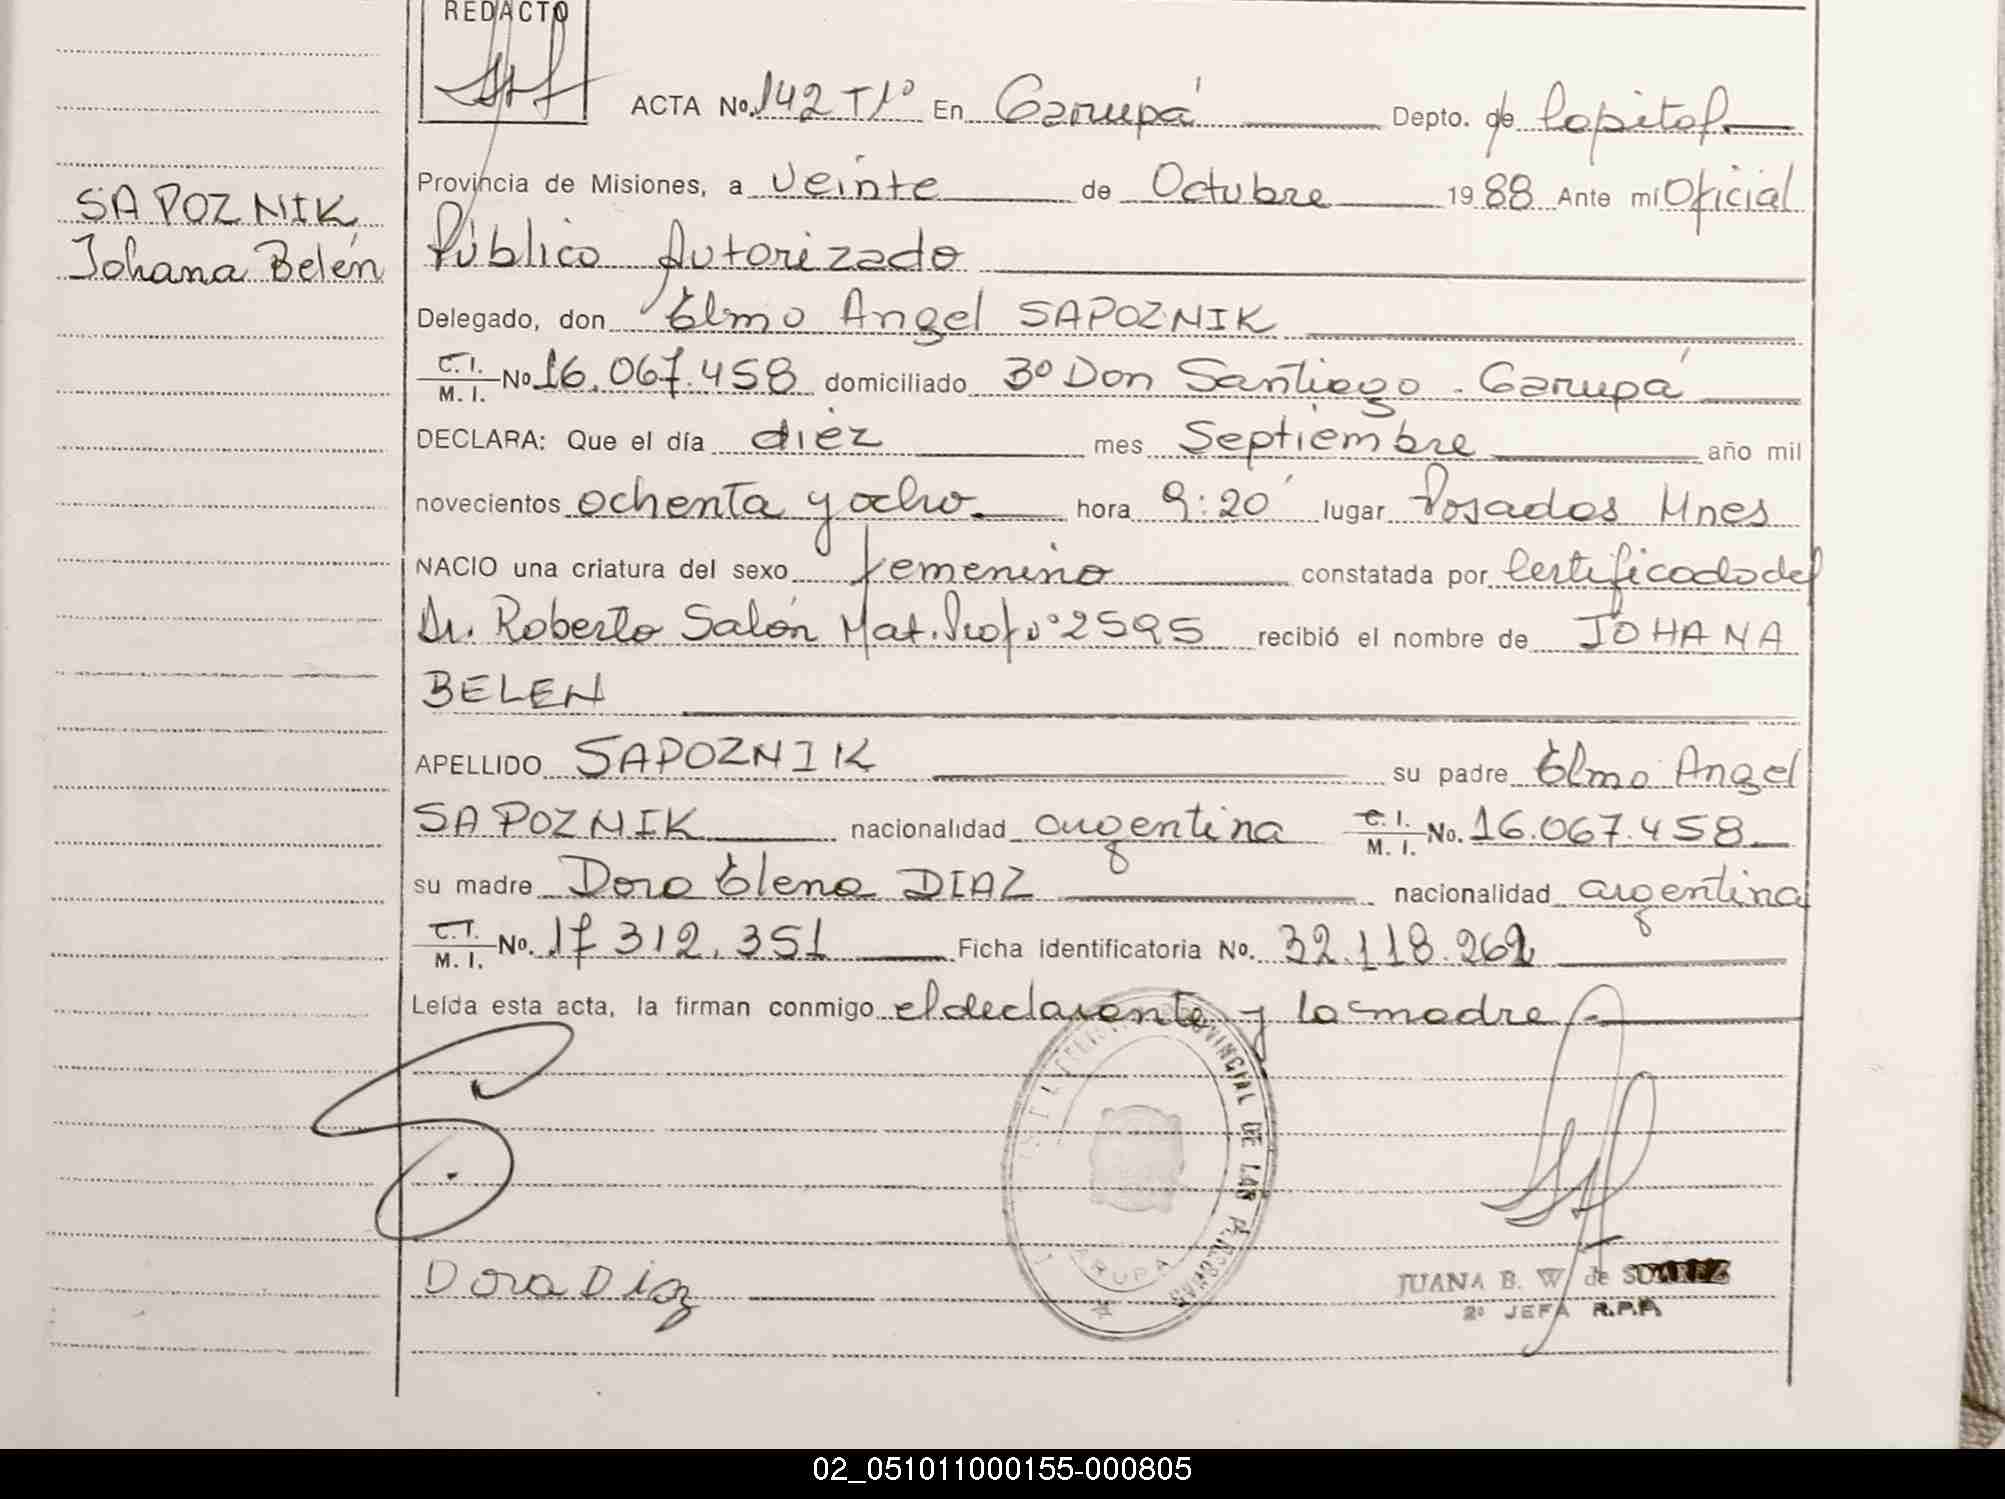 REDACTO
ACTA No. 142 T1º En Garupá Depto. de Capital
SAPOZNIK
Johana Belén
Provincia de Misiones, a veinte de Octubre 1988 Ante mi Oficial
Público Autorizado
Delegado, don Elmo Angel SAPOZNIK
C. I.
M. I. No 16.067.458 domiciliado 3º Don Santiago - Garupá
DECLARA: Que el día diéz mes Septiembre año mil
novecientos ochenta y ocho hora 9:20 lugar Posadas Mnes
NACIO una criatura del sexo femenino constatada por Certificado del
Dr. Roberto Salón Mat. Prof Nº 2595 recibió el nombre de JOHANA
BELEN
APELLIDO SAPOZNIK su padre Elmo Angel
SAPOZNIK nacionalidad argentina C. I.
M. I. No. 16.067.458
su madre Dora Elena DIAZ nacionalidad argentina
C. I.
M. I. No. 17 312.351 Ficha Identificatoria No. 32.118.262
Leída esta acta, la firman conmigo el declarante y la madre
PROVINCIAL DE LAS PERSONAS
GARUPA
Dora Diaz
JUANA B. W de SUAREZ
2º JEFA R.P.P.
02_051011000155-000805